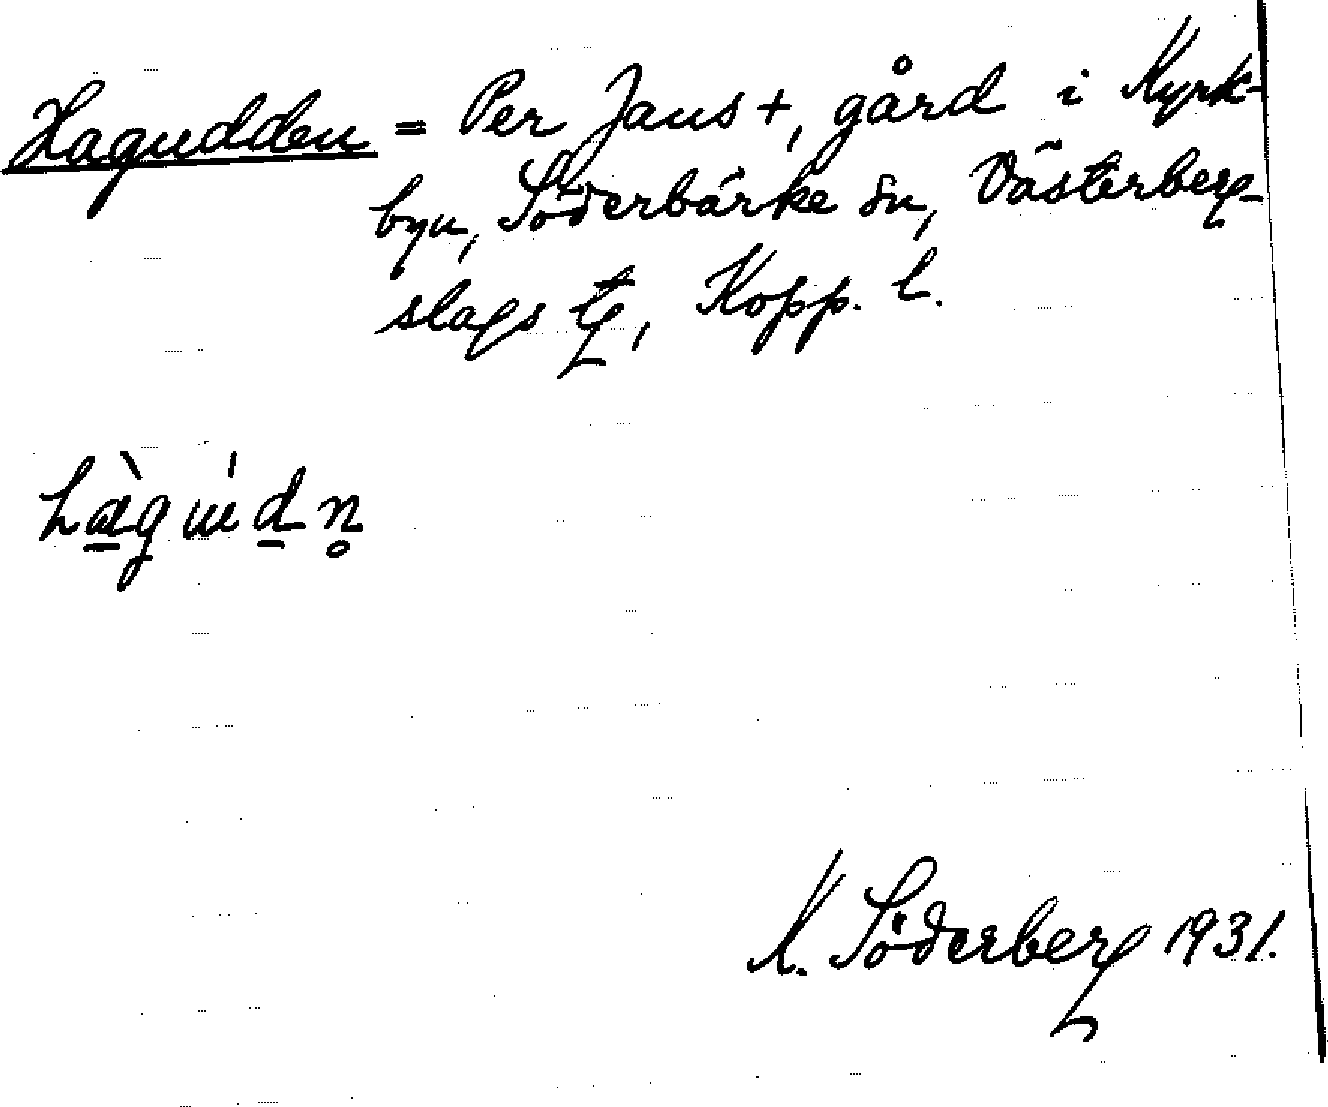 Hagudden = Per Jans +, gård i Kyrk-
byn, Söderbärke sn, Västerberg-
slags tg, Kopp. l.
hàgúdn̥
K. Söderberg 1931.